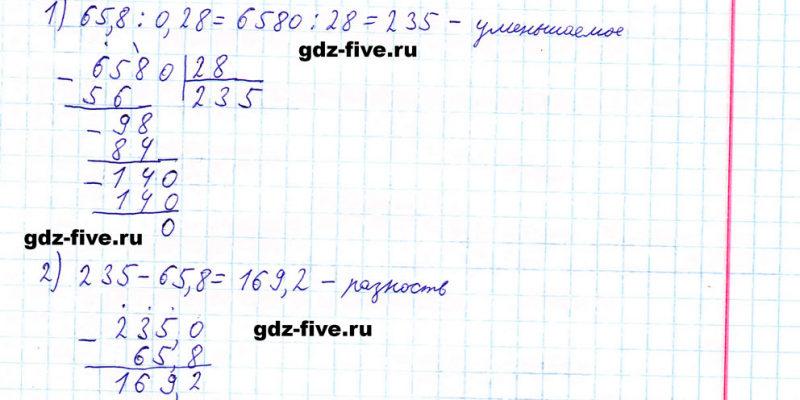 1) 65,8 : 0,28 = 6580 : 28 = 235 – уменьшаемое
gdz-five.ru
– 6580 | 28
56 235
– 98
84
– 140
140
0
gdz-five.ru
2) 235 – 65,8 = 169,2 – разность
gdz-five.ru
– 235,0
65,8
169,2